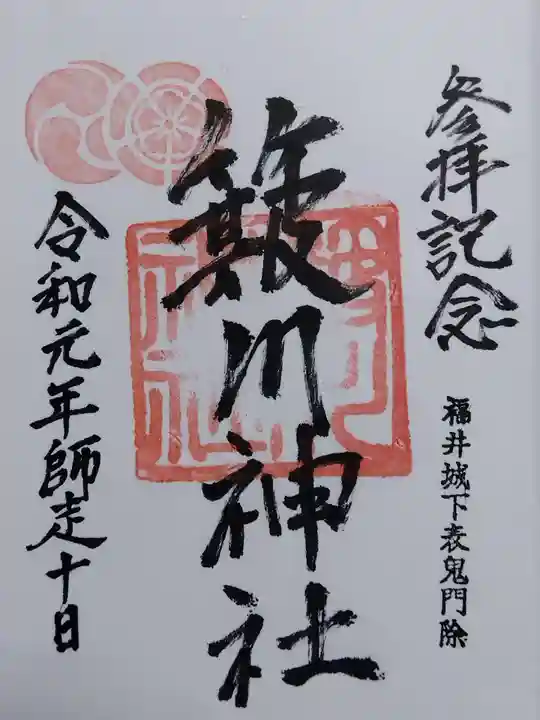 参拝記念
福井城下表鬼門除
簸川神社
令和元年師走十日